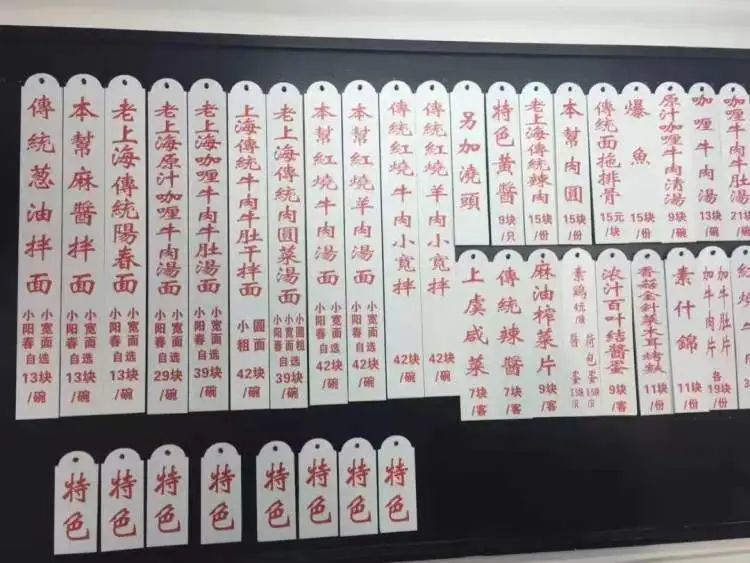 傳統葱油拌面
小阳春 小宽面 自选
13块/碗
本幫麻醬拌面
小阳春 小宽面 自选
13块/碗
老上海傳統陽春面
小阳春 小宽面 自选
13块/碗
老上海原汁咖喱牛肉湯面
小阳春 小宽面 自选
29块/碗
老上海咖喱牛肉牛肚湯面
小阳春 小宽面 自选
39块/碗
上海傳統牛肉牛肚干拌面
小粗 圓面
42块/碗
老上海傳統肉圓菜湯面
小阳春 小宽面 小圓粗 自选
39块/碗
本幫紅燒牛肉湯面
小阳春 小宽面 自选
42块/碗
本幫紅燒羊肉湯面
小阳春 小宽面 自选
42块/碗
傳統紅燒牛肉小寬拌
42块/碗
傳統紅燒羊肉小寬拌
42块/碗
另加澆頭
特色黄醬
9块/只
老上海傳統辣肉
15块/份
本幫肉圓
15块/份
傳統面拖排骨
15元/块
爆魚
15块/份
原汁咖喱牛肉清湯
9块/碗
咖喱牛肉湯
13块/碗
咖喱牛肉牛肚湯
21块/碗
上虞咸菜
7块/客
傳統辣醬
7块/客
麻油榨菜片
9块/客
素鷄
醬蛋
荷包蛋
浓汁百叶结醬蛋
9块/客
香菇金針菜木耳烤麩
11块/份
素什錦
11块/份
加牛肉片
加牛肚片
各19块/份
特色
特色
特色
特色
特色
特色
特色
特色